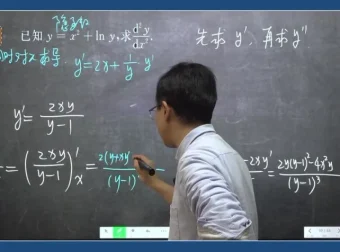 隐函数
已知 y = x² + ln y, 求 d²y/dx².
先求 y', 再求 y''
对x求导 y' = 2x + 1/y · y'
y' = 2xy/(y-1)
= (2xy/(y-1))'ₓ = 2(y+xy')/(y-1) -2xy' = (2y(y-1)²-4x²y)/(y-1)³